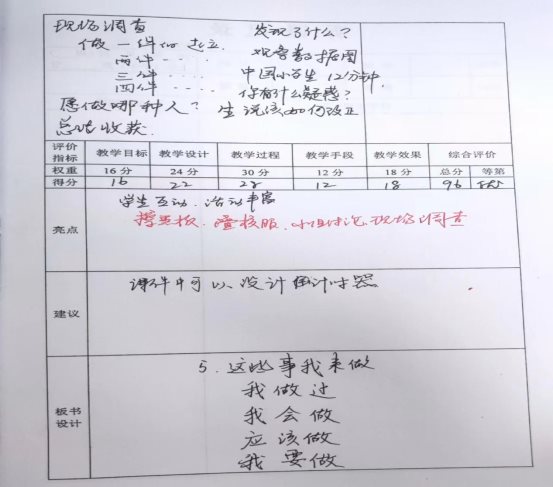 现场调查 发现了什么？
做一件的起立 观察数据图
两件···· 中国小学生12分钟
三件····
四件···· 你有什么疑惑？
愿做哪种人？ 生说该如何改正
总结收获
评价指标 教学目标 教学设计 教学过程 教学手段 教学效果 综合评价
权重 16分 24分 30分 12分 18分 总分 等第
得分 16 22 28 12 18 96 优
亮点
学生互动、活动丰富
小组讨论、现场调查
建议
课件中可以设计倒计时器
板书设计
5.这些事我来做
我做过
我会做
应该做
我要做